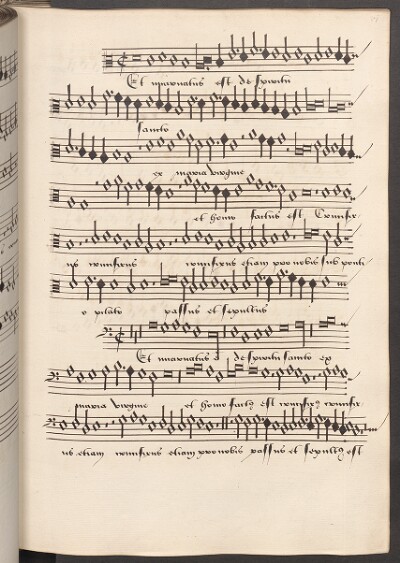 Et incarnatus est de spiritu
sancto
ex maria virgine
et homo factus est Crucifix
us crucifixus crucifixus etiam pro nobis sub ponti
o pilato passus et sepultus
Et incarnatus de spiritu sancto ex
maria virgine et homo factus est crucifixus crucifix
us etiam crucifixus etiam pro nobis passus et sepultus est